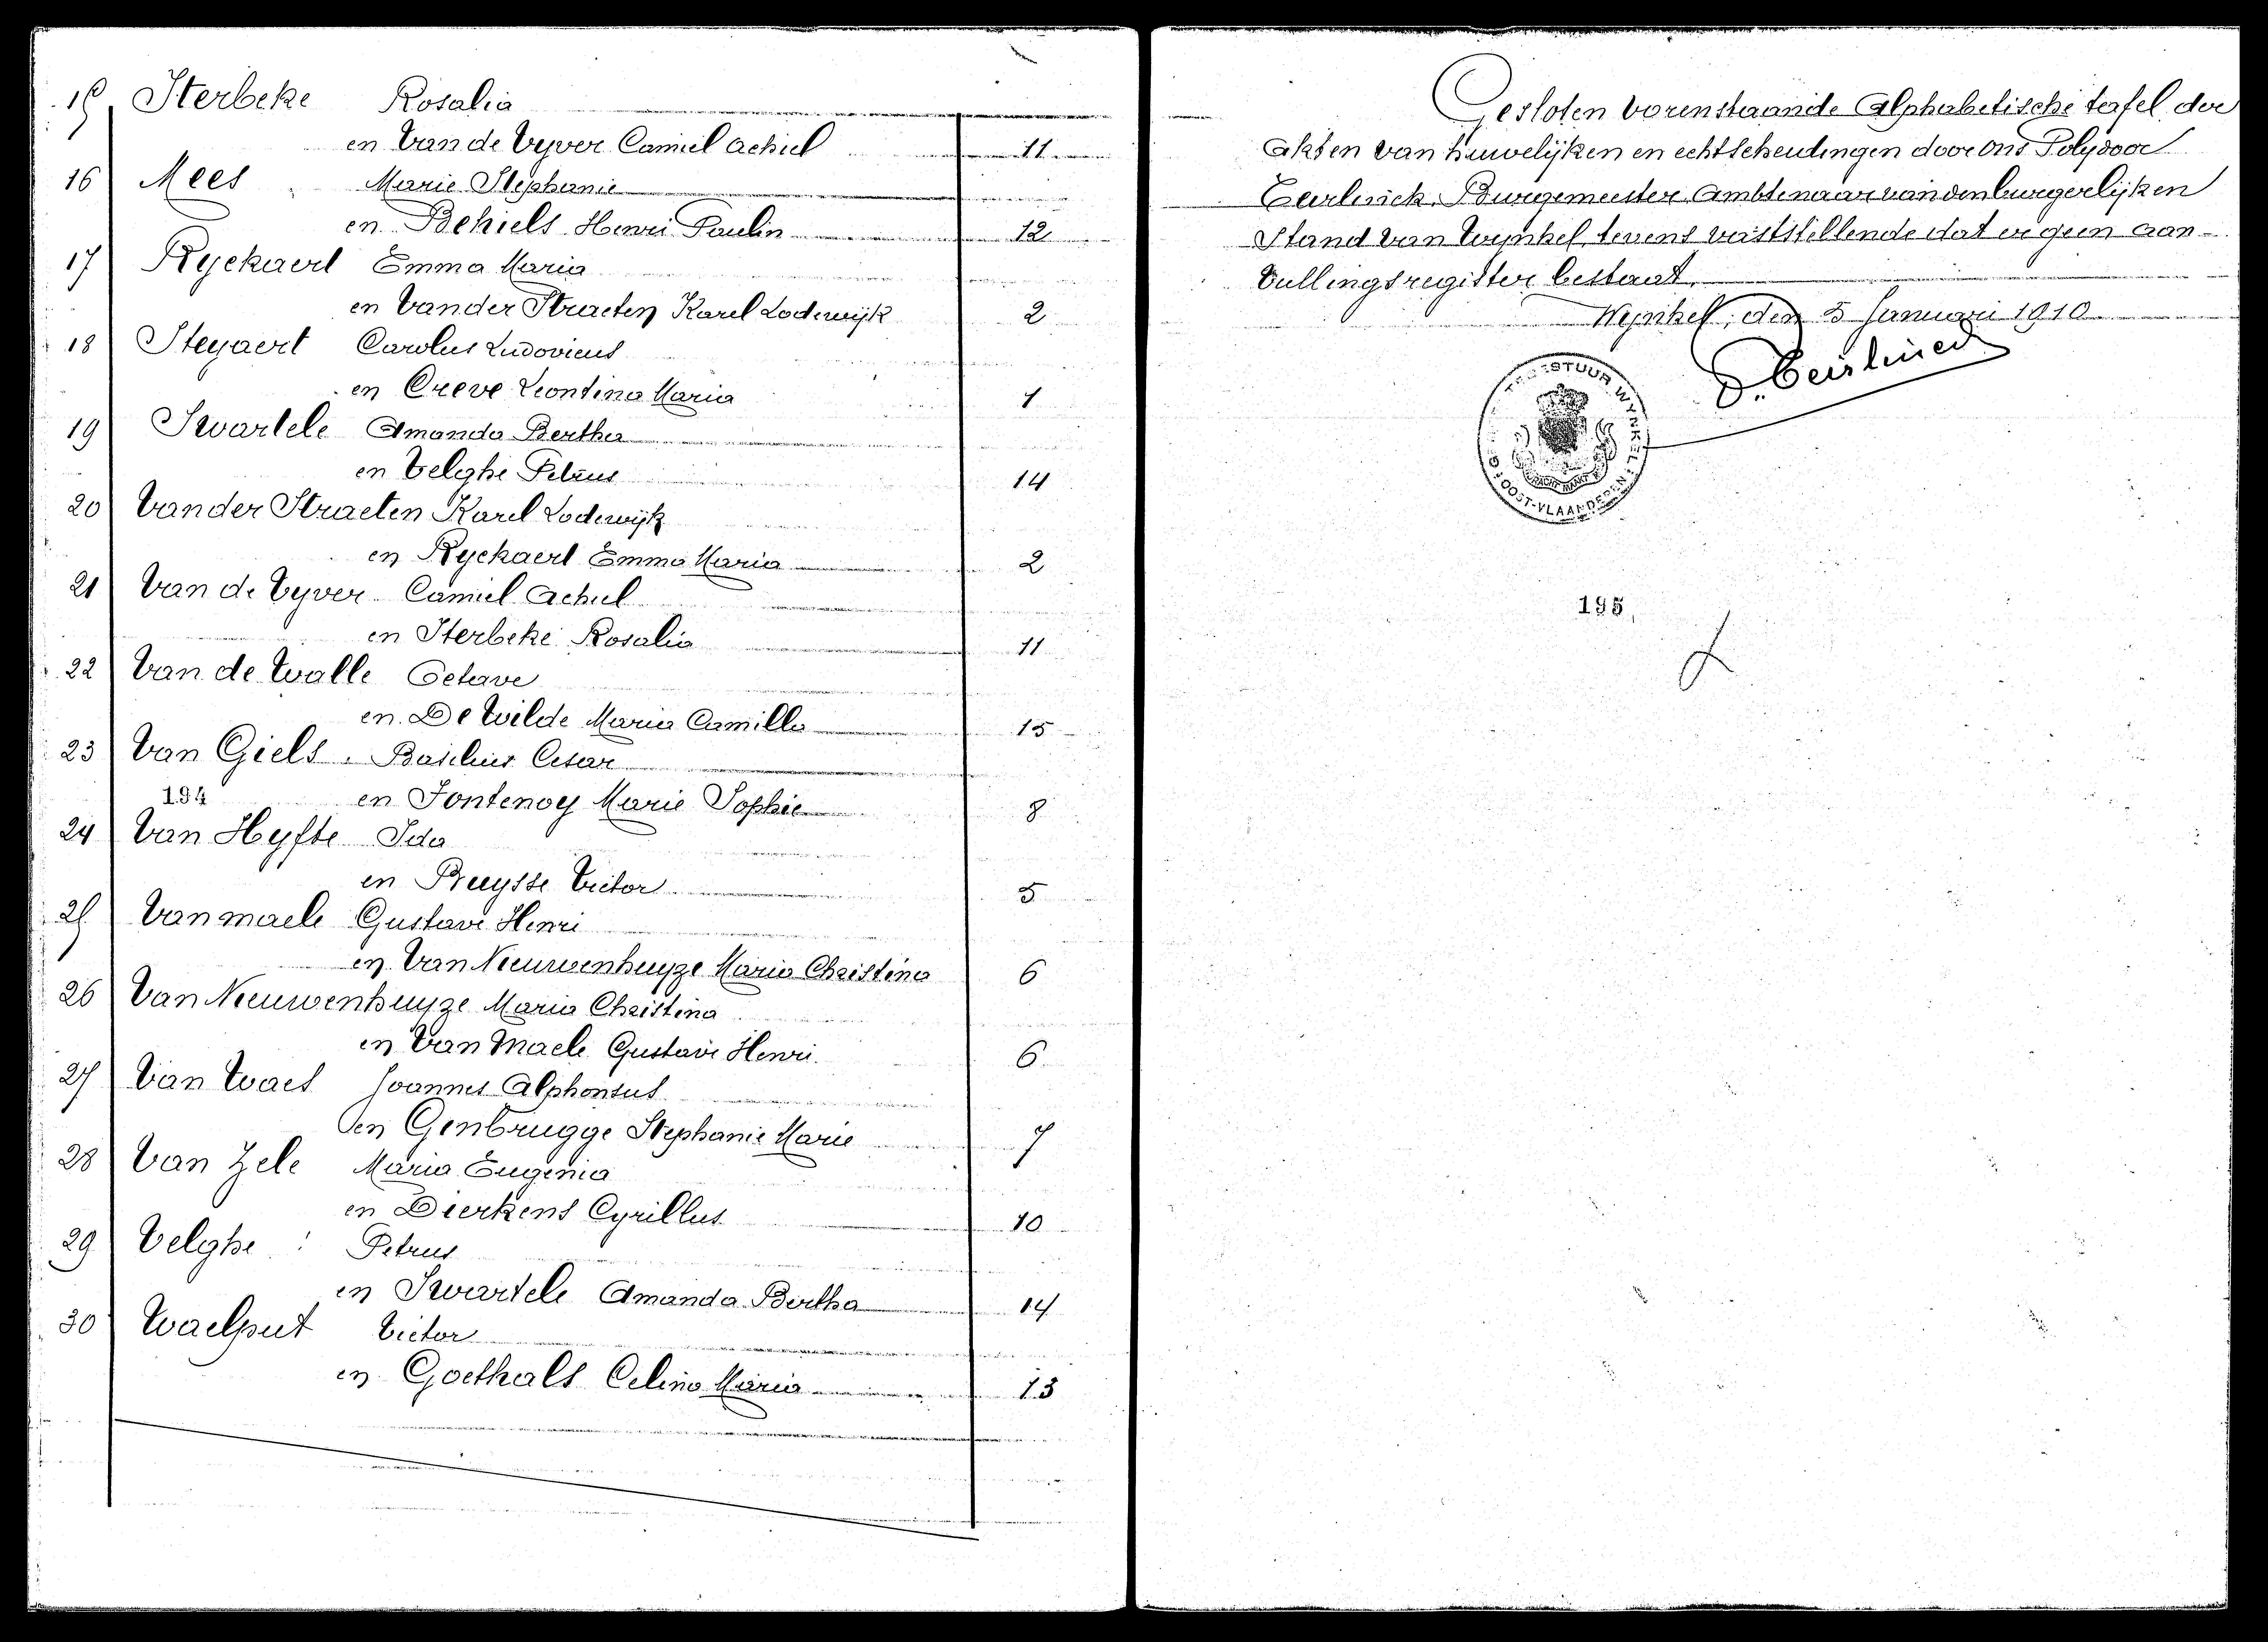 15 Sterbeke Rosalia
en Van de Vyver Camiel Achiel 11
16 Mees Marie Stephanie
en Behiels Henri Paulin 12
17 Ryckaert Emma Maria
en Vander Straeten Karel Lodewijk 2
18 Steyaert Carolus Ludovicus
en Creve Leontina Maria 1
19 Swartele Amanda Bertha
en Velghe Petrus 14
20 Vander Straeten Karel Lodewijk
en Ryckaert Emma Maria 2
21 Van de Vyver Camiel Achiel
en Sterbeke Rosalia 11
22 Van de Walle Octave
en De Wilde Maria Camilla 15
23 Van Giels Basilius Cesar
194 en Fontenoy Marie Sophie 8
24 Van Hyfte Ida
en Buysse Victor 5
25 Van maele Gustave Henri
en Van Nieuwenhuyze Maria Christina 6
26 Van Nieuwenhuyze Maria Christina
en Van Maele Gustave Henri 6
27 Van Waes Joannes Alphonsus
en Genbrugge Stephanie Marie 7
28 Van Zele Maria Eugenia
en Dierkens Cyrillus 10
29 Velghe Petrus
en Swartele Amanda Bertha 14
30 Waelput Victor
en Goethals Celina Maria 13
Gesloten vorenstaande Alphabetische tafel der
akten van huwelijken en echtscheidingen door ons Polydoor
Eerlinck, Burgemeester, Ambtenaar van den burgerlijken
Stand van Wynkel, tevens vaststellende dat er geen aan-
vullingsregister bestaat.
Wynkel, den 5 Januari 1910
P. Eerlinck
BESTUUR WYNKEL
OOST-VLAANDEREN
MAAKT
195